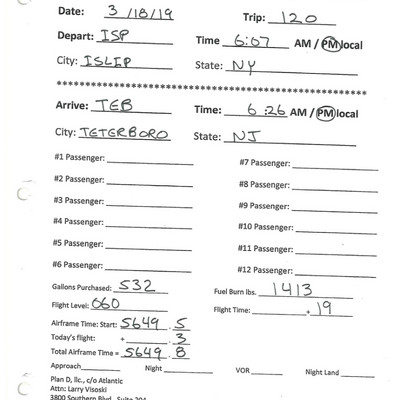 Date: 3/18/19 Trip: 120
Depart: ISP Time 6:07 AM / PM local
City: ISLIP State: NY
************************************************
Arrive: TEB Time: 6:26 AM / PM local
City: TETERBORO State: NJ
#1 Passenger: #7 Passenger:
#2 Passenger: #8 Passenger:
#3 Passenger: #9 Passenger:
#4 Passenger: #10 Passenger:
#5 Passenger: #11 Passenger:
#6 Passenger: #12 Passenger:
Gallons Purchased: 532 Fuel Burn lbs. 1413
Flight Level: 060 Flight Time: . 19
Airframe Time: Start: 5649.5
Today's flight: + .3
Total Airframe Time = 5649.8
Approach Night VOR Night Land
Plan D, llc., c/o Atlantic
Attn: Larry Visoski
3800 Southern Blvd., Suite 204